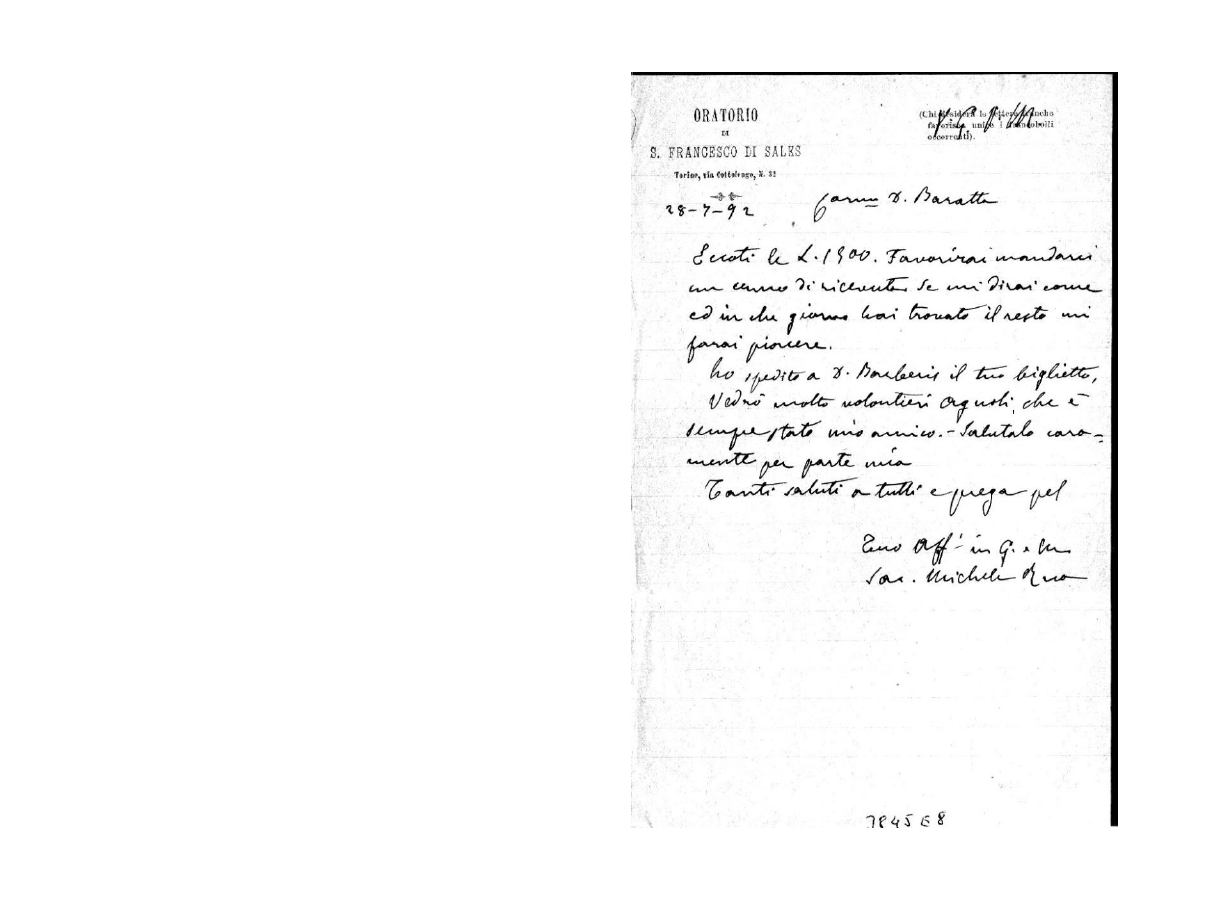 ORATORIO
DI
S. FRANCESCO DI SALES
Torino, via Cottolengo, N. 32
28-7-92
(Chi desidera la lettera anche
favorisca unire i francobolli
occorrenti).
Car.mo D. Baratta
Eccoti le L. 1500. Favorirai mandarci
un cenno di ricevuta. Se mi dirai come
ed in che giorno hai trovato il resto mi
farai piacere.
Ho spedito a D. Barberis il tuo biglietto,
Vedrò molto volontieri che è
sempre stato mio amico. - Salutalo cara=
mente per parte mia
Tanti saluti a tutti e prega pel
Tuo Aff. in G. e M.
Sac. Michele Rua
7845 E8